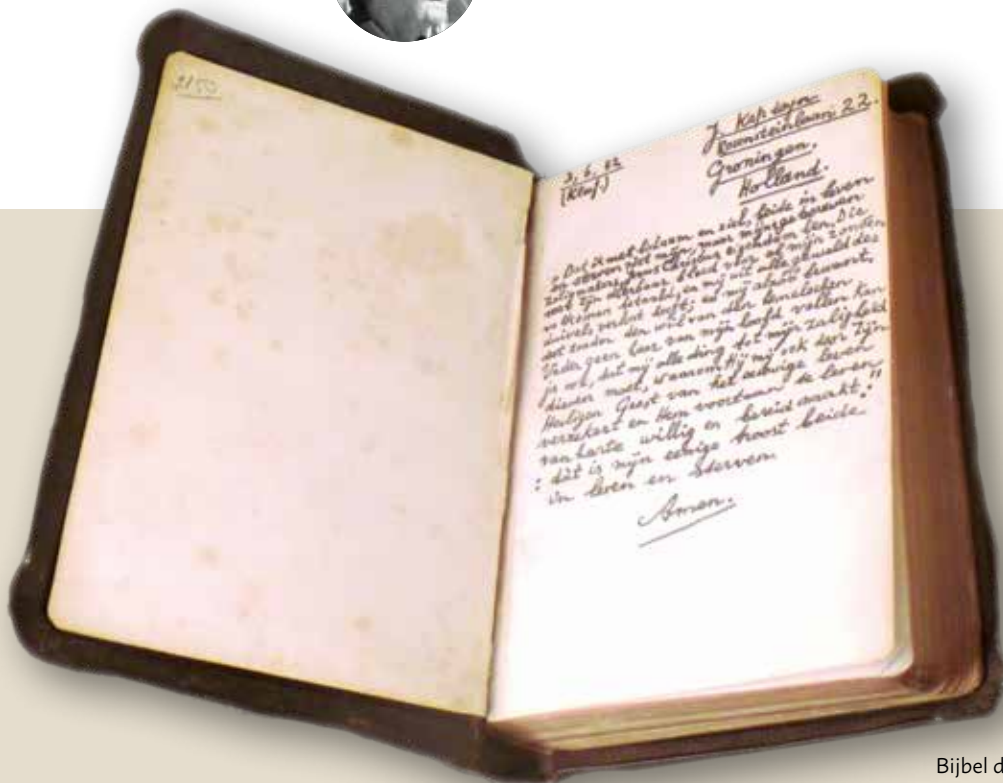 J. Kapteyn
22.
3. 6. 42
Groningen.
Holland.
„Dat ik met lichaam en ziel, beide in leven
en sterven niet mijn, maar mijns getrouwen
Zaligmakers Jezus Christus eigendom ben. Die
met Zijn dierbaar bloed voor al mijn zonden
volkomen betaald, en mij uit alle geweld des
duivels verlost heeft; en mij alzoo bewaart,
dat zonder den wil van den hemelschen
Vader geen haar van mijn hoofd vallen kan
ja ook, dat mij alle ding tot mijn zaligheid
dienen moet, waarom Hij mij ook door Zijn
Heiligen Geest van het eeuwige leven
verzekert en Hem voortaan te leven
van harte willig en bereid maakt."
: dát is mijn eenige troost beide
in leven en sterven.
Amen.
Bijbel d